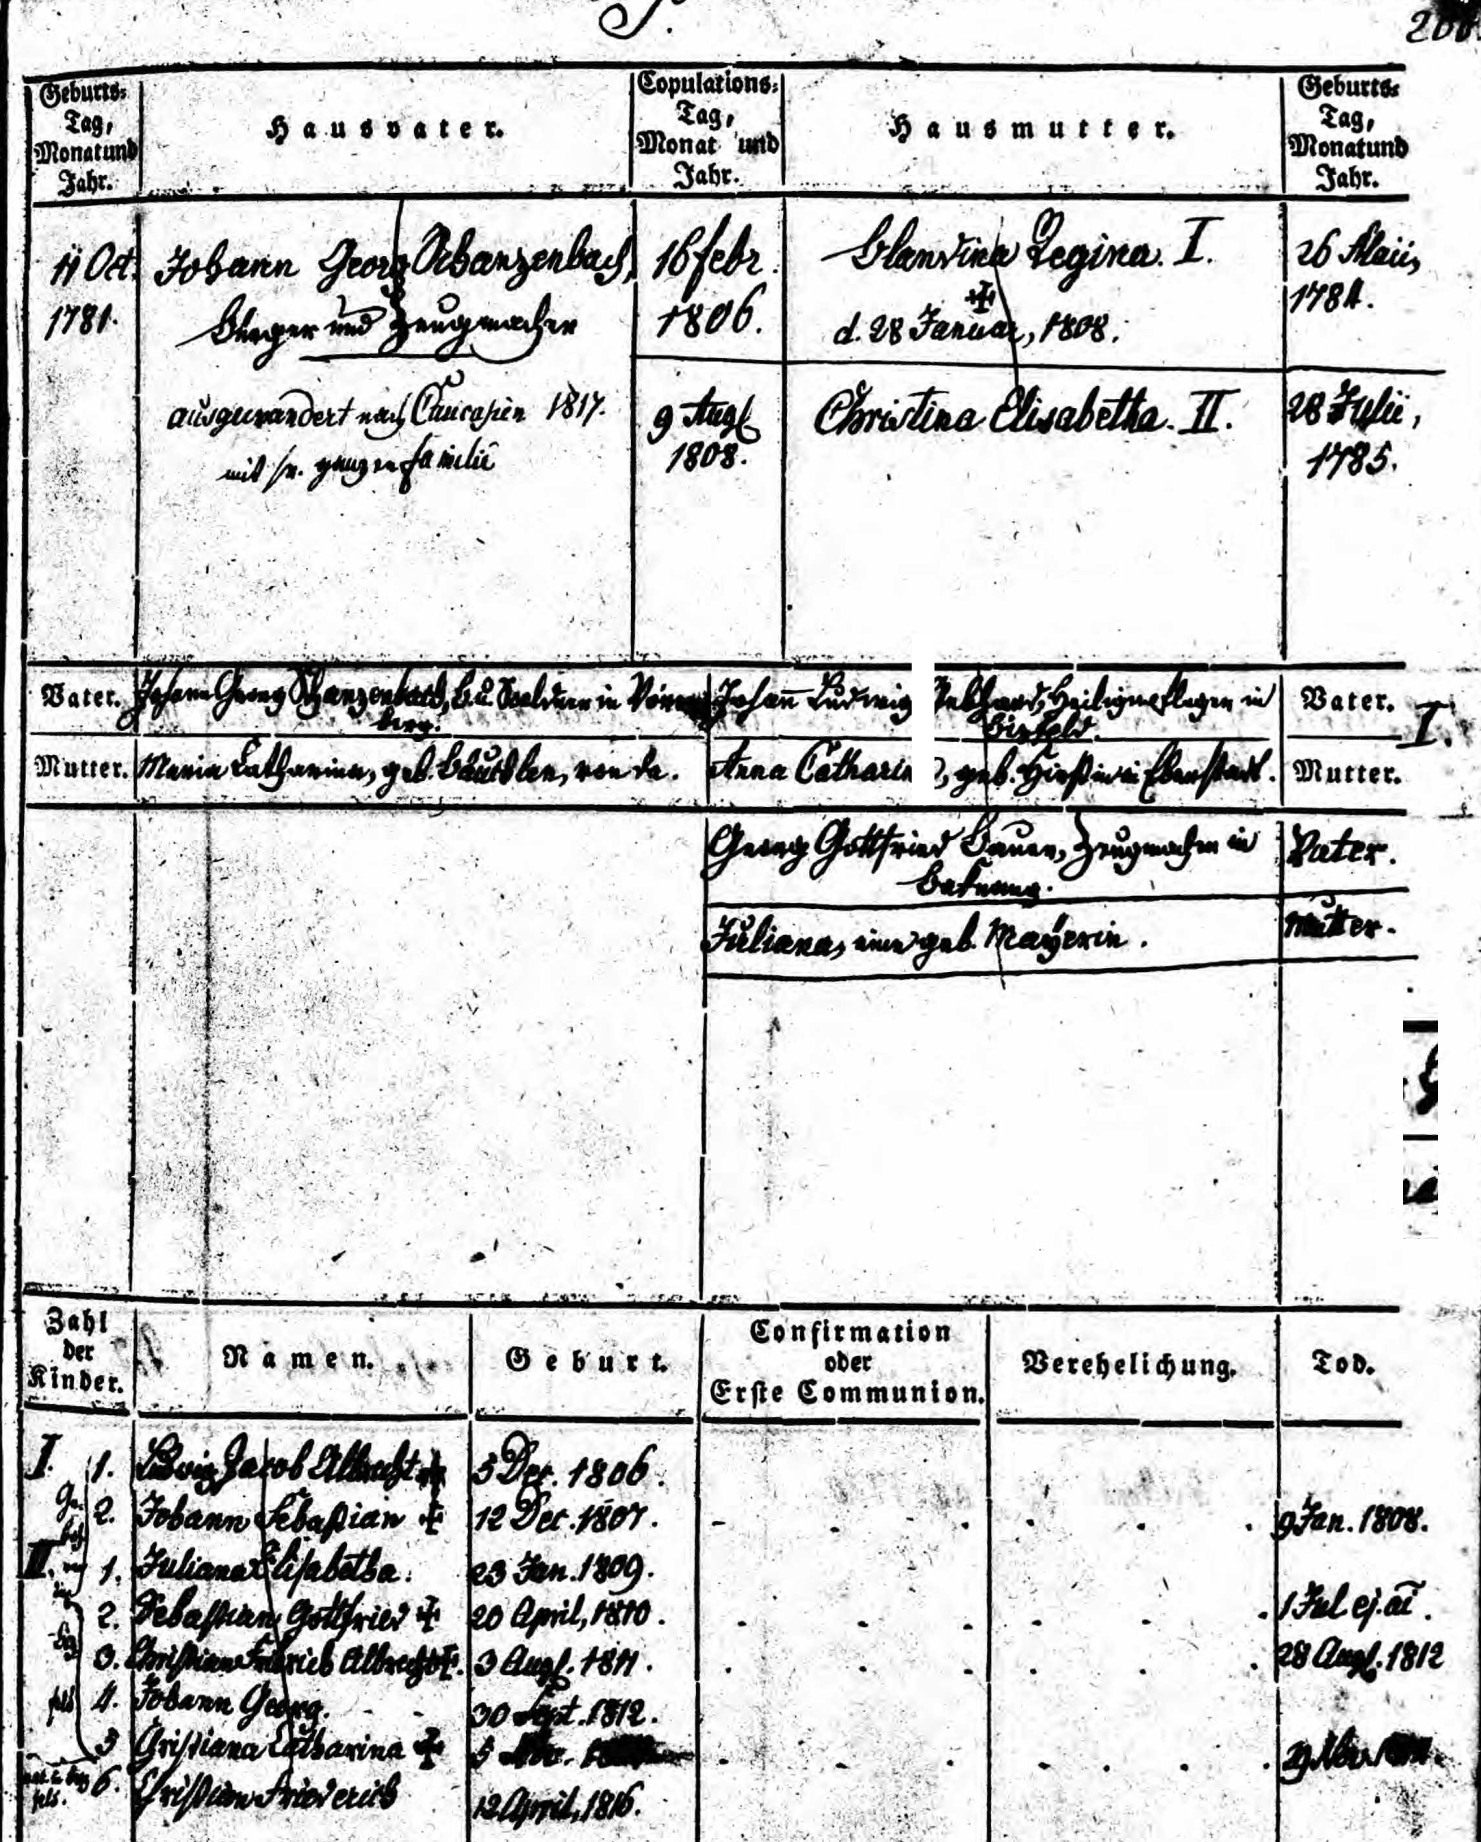 S.
Geburts-
Tag,
Monat und
Jahr.
Hausvater.
Copulations-
Tag,
Monat und
Jahr.
Hausmutter.
Geburts-
Tag,
Monat und
Jahr.
11 Oct.
1781.
Johann Georg Schanzenbach,
Burger und Zeugmacher
ausgewandert nach Caucasien 1817.
mit sr. ganzen familie
16 febr.
1806.
Regina. I.
d. 28 Januar, 1808.
26 Maii,
1784.
9 Augs
1808.
Christina Elisabetha. II.
28 Julii,
1785.
Vater. Johann Georg Schanzenbach, B. u. in
berg.
Johan Ludwig Heiligenpfleger in
Vater. I.
Mutter. Maria Catharina, geb. von da.
Anna Catharin geb. in
Mutter.
Georg Gottfried Bauer, Zeugmacher in
Baknang.
Vater.
Juliana, eine geb. Mayerin.
Mutter.
Zahl
der
Kinder.
Namen.
Geburt.
Confirmation
oder
Erste Communion.
Verehelichung.
Tod.
I. 1. Ludwig Jacob Albrecht 5 Dec. 1806.
2. Johann Sebastian 12 Dec. 1807. 9 Jan. 1808.
II. 1. Juliana Elisabetha. 23 Jan. 1809.
2. Sebastian Gottfried 20 April, 1810. 1 Jul ej. ai.
3. Christian Fridrich Albrecht 3 Augs. 1811. 28 Augs. 1812
4. Johann Georg. 30 Sept. 1812.
5 Christiana Catharina 5
6. Christian Friederich 12 April, 1816.